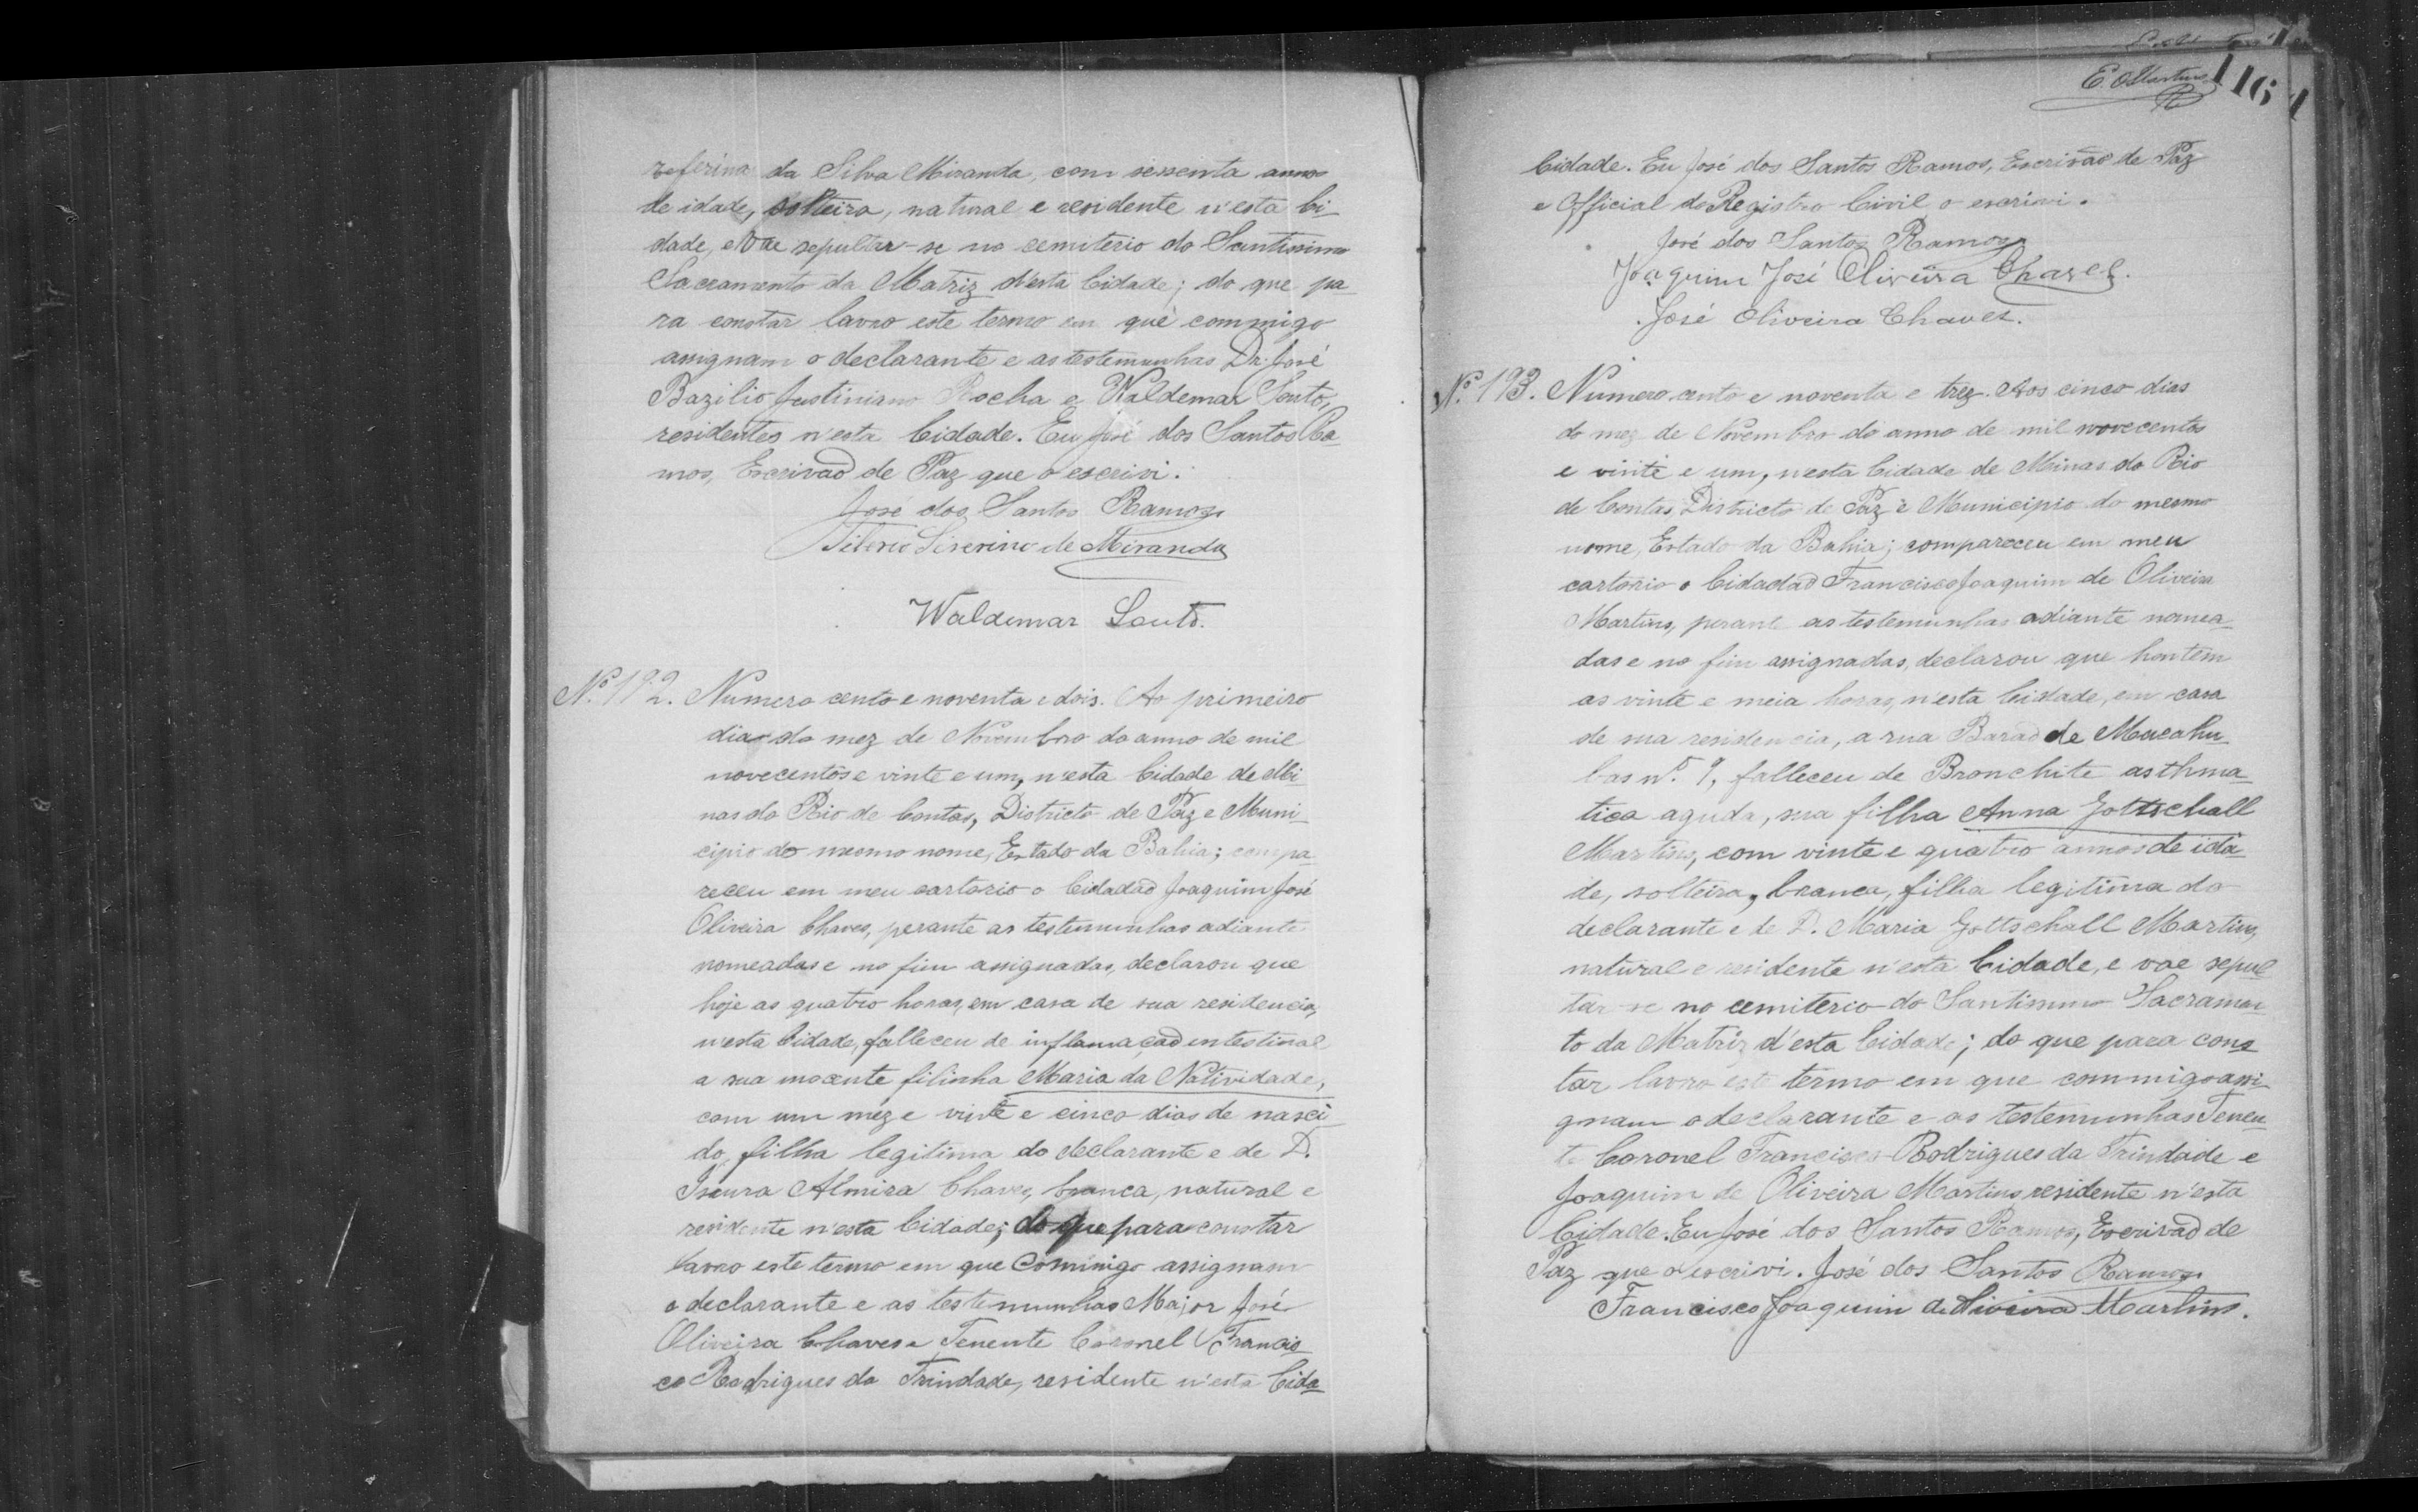 zeferina da Silva Miranda, com sessenta annos
de idade, solteira, natural e residente n'esta Ci-
dade, e vae sepultar-se no cemiterio do Santissimo
Sacramento da Matriz d'esta Cidade; do que pa-
ra constar lavro este termo em que commigo
assignam o declarante e as testemunhas Dr. José
Bazilio Justiniano Rocha e Waldemar Souto,
residentes n'esta Cidade. Eu José dos Santos Ra-
mos, Escrivão de Paz que o escrivi.
José dos Santos Ramos
Tiberio Siverino de Miranda
Waldemar Souto.
Nº 192. Numero cento e noventa e dois. Ao primeiro
dia do mez de Novembro do anno de mil
novecentos e vinte e um, n'esta Cidade de Mi-
nas do Rio de Contas, Districto de Paz e Muni-
cipio do mesmo nome, Estado da Bahia; compa-
receu em meu cartorio o Cidadão Joaquim José
Oliveira Chaves, perante as testemunhas adiante
nomeadas e no fim assignadas, declarou que
hoje as quatro horas, em casa de sua residencia,
n'esta Cidade, falleceu de inflamação intestinal
a sua inocente filinha Maria da Natividade,
com um mez e vinte e cinco dias de nasci-
do, filha legitima do declarante e de D.
Isaura Almira Chaves, branca, natural e
residente n'esta Cidade; do que para constar
lavro este termo em que commigo assignam
o declarante e as testemunhas Major José
Oliveira Chaves e Tenente Coronel Francis-
co Rodrigues da Trindade, residente n'esta Cida-
E. O Martins
116
Cidade. Eu José dos Santos Ramos, Escrivão de Paz
e Official do Registro Civil o escrivi.
José dos Santos Ramos
Joaquim José Oliveira Chaves.
José Oliveira Chaves.
Nº 193. Numero cento e noventa e trez. Aos cinco dias
do mez de Novembro do anno de mil novecentos
e vinte e um, nesta Cidade de Minas do Rio
de Contas, Districto de Paz e Municipio do mesmo
nome, Estado da Bahia; compareceu em meu
cartorio o Cidadão Francisco Joaquim de Oliveira
Martins, perante as testemunhas adiante nomea-
das e no fim assignadas, declarou que hontem
as vinte e meia horas, n'esta Cidade, em casa
de sua residencia, a rua Barão de Macahu-
bas nº 9, falleceu de Bronchite asthma-
tica aguda, sua filha Anna Gottschall
Martins, com vinte e quatro annos de ida-
de, solteira, branca, filha legitima do
declarante e de D. Maria Gottschall Martins,
natural e residente n'esta Cidade, e vae sepul-
tar-se no cemiterio do Santissimo Sacramen-
to da Matriz d'esta Cidade; do que para cons-
tar lavro este termo em que commigo assi-
gnam o declarante e as testemunhas Tenen-
te Coronel Francisco Rodrigues da Trindade e
Joaquim de Oliveira Martins residente n'esta
Cidade. Eu José dos Santos Ramos, Escrivão de
Paz que o escrivi. José dos Santos Ramos
Francisco Joaquim de Oliveira Martins.